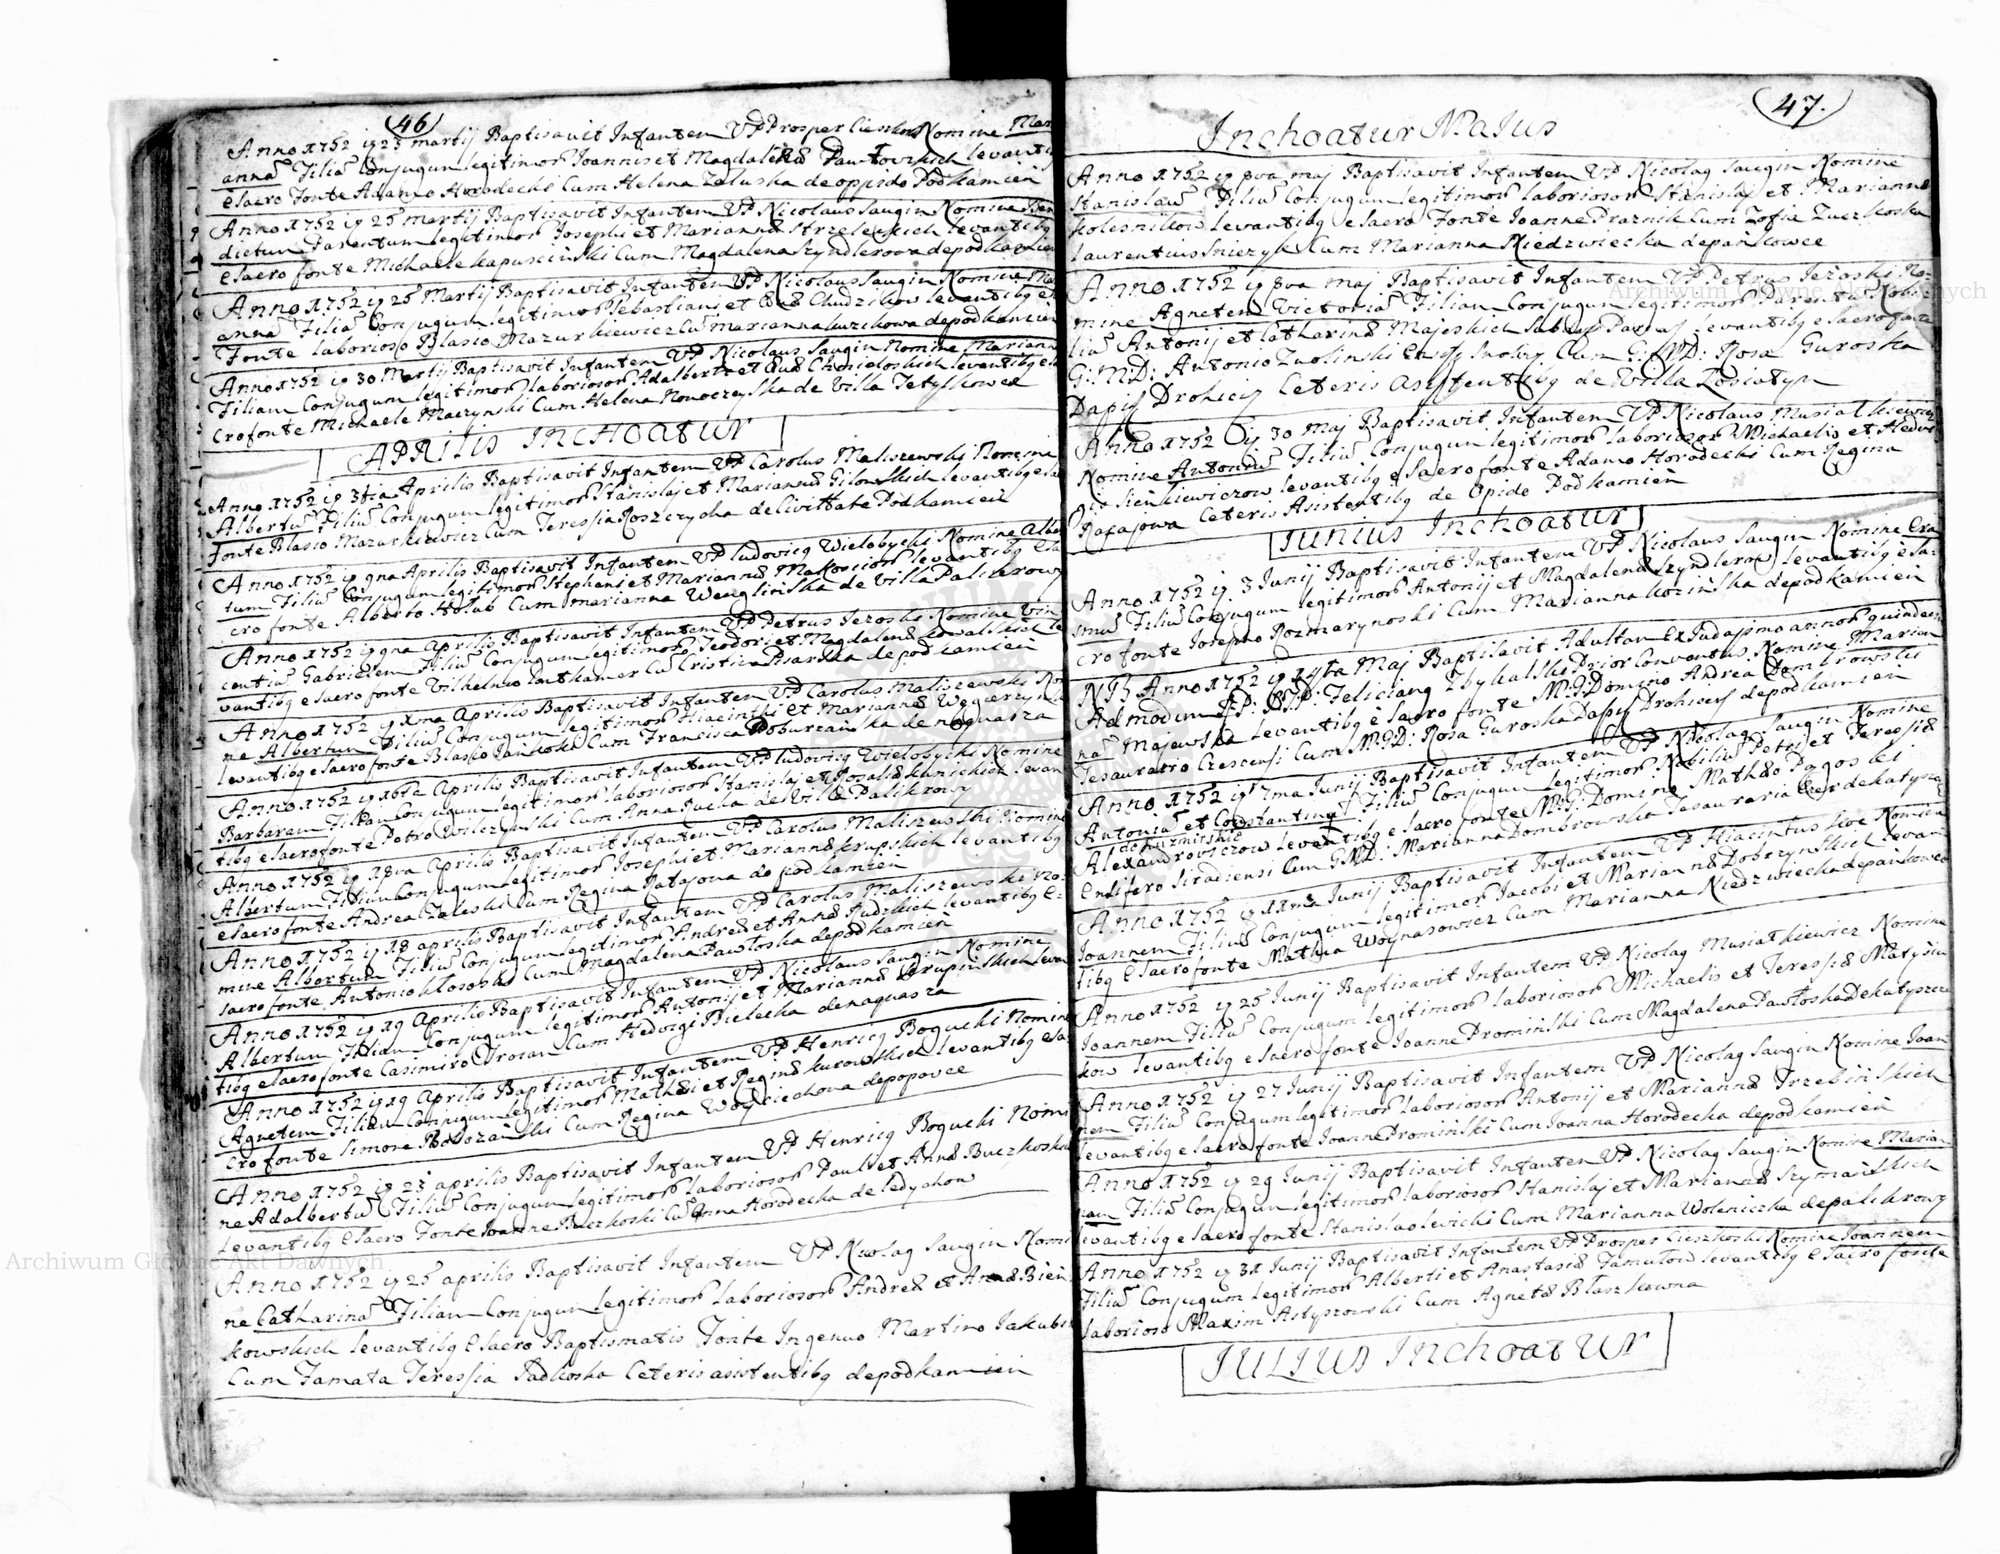 46
Anno 1752 ij 25 martij Baptisavit Infantem VP Prosper Cieszkoski Nomine Mari
anna Filia Conjugum legitimor Joannis et Magdalena Pawłowskich levanti
e Sacro Fonte Adamo Horodecki Cum Helena Zaluska de oppido Podkamien
Anno 1752 ij 25 martij Baptisavit Infantem VP Nicolaus Saugin Nomine Ben
dictum Parentum legitimor Josephi et Marianna Strzeleckich levantibg
e Sacro fonte Michaele Kapuscinski Cum Magdalena Szyndlerowa de podkamien
Anno 1752 ij 25 Martij Baptisavit Infantem VP Nicolaus Saugin Nomine Mari
anna Filia Conjugum legitimor Sebastiani et Eva Chudzikow levantibg e
Fonte laborioso Blasio Mazurkiewicz Cu marianna de podkamien
Anno 1752 ij 30 Martij Baptisavit Infantem VP Nicolaus Saugin Nomine Mariann
Filiam Conjugum legitimor laboriosor Adalberti et Eva levantibg e Sa
cro fonte Michaele Maczynski Cum Helena de Villa Tetylkowce
APRILIS INCHOATUR
Anno 1752 ij 3tia Aprilis Baptisavit Infantem VP Carolus Maliszewski Nomine
Albertu Filiu Conjugum legitimor Stanislaj et Marianna Gilowskich levantibg e Sa
fonte Blasio Mazurkiewicz Cum Teressia Roszczycka de Civittate Podkamien
Anno 1752 ij 9na Aprilis Baptisavit Infantem VP ludovicg Wielobycki Nomine Alber
tum Filiu Conjugum legitimor Stephani et Marianna Makosciow levantibg e Sa
cro fonte Alberto Holub Cum marianna Wenglinska de Villa Palikrowy
Anno 1752 ij 9na Aprilis Baptisavit Infantem VP Petrus Jezoski Nomine Vin
centiu Gabrielem Filiu Conjugum legitimor Teodori et Magdalena Kowalskich le
vantibg e Sacro fonte Vilhelmo Cu Cristina Pisarska de podkamien
Anno 1752 ij Xma Aprilis Baptisavit Infantem VP Carolus Maliszewski No
ne Albertum Filiu Conjugum legitimor Hiacinthi et Marianna
levantibg e Sacro fonte Blasio Cum Francisca de naquasza
Anno 1752 ij Aprilis Baptisavit Infantem VP ludovicg Wielobycki Nomine
Barbaram Filiam Conjugum legitimor laboriosor Stanislaj et Rosalia levan
tibg e Sacro fonte Petro Wilczynski Cum Anna de Villa Palikrowy
Anno 1752 ij 18va Aprilis Baptisavit Infantem VP Carolus Maliszewski Nomine
Albertum Filium Conjugum legitimor Josephi et Marianna Krupskich levantibg
e Sacro fonte Andrea Zaleski Cum Regina Ratajowa de podkamien
Anno 1752 ij 18 aprilis Baptisavit Infantem VP Carolus Maliszewski No
mine Albertum Filiu Conjugum legitimor Andrea et Anna Rudzkich levantibg e
Sacro fonte Antonio Kłososki Cum Magdalena Pawłoska de podkamien
Anno 1752 ij 19 Aprilis Baptisavit Infantem VP Nicolaus Saugin Nomine
Albertum Filium Conjugum legitimor Antonij et Marianna levan
tibg e Sacro fonte Casimiro Trocan Cum Hedvigi Bielecka de naquasza
Anno 1752 ij 19 Aprilis Baptisavit Infantem VP Henricg Bogucki Nomine
Agnetem Filiam Conjugum legitimor Mathei et Regina Kurowskich levantibg e Sa
cro fonte Simone Cum Regina Woyciechowa de popowce
Anno 1752 ij 23 aprilis Baptisavit Infantem VP Henricg Bogucki Nomi
ne Adalbertu Filiu Conjugum legitimor laboriosor Pauli et Anna
levantibg e Sacro Fonte Joanne Buczkoski Cu Anna Horodecka de ledychow
Anno 1752 ij 25 aprilis Baptisavit Infantem VP Nicolag Saugin Nomi
ne Catharina Filiam Conjugum legitimor laboriosor Andrea et Anna Bien
kowskich levantibg e Sacro Baptismatis Fonte Ingenuo Martino
Cum Famata Teressia Sadkoska Ceteris asistentibg de podkamien
47.
Inchoatur Majus
Anno 1752 ij 8va maj Baptisavit Infantem VP Nicolag Saugin Nomine
Stanislau Filiu Conjugum legitimor laboriosor Stanislaj et Marianna
Kolesnikow levantibg e Sacro Fonte Joanne Praznik Cum Zofia Zuczkoska
laurentius Sniezyk Cum Marianna Niedzwiecka de pańkowce
Anno 1752 ij 8va maj Baptisavit Infantem VP Petrus Jezoski No-
mine Agnetem Victoria Filiam Conjugum legitimor Parentu Nobi
liu Antonij et Catharina Majeskich levantibg e Sacro fonte
G: M: D: Antonio Zwolinski Cum G: M: D: Rosa Guroska
Dapif Drohicij Ceteris Assistentibg de Villa Losiatyn
Anno 1752 ij 30 Maj Baptisavit Infantem VP Nicolaus Musiałkiewicz
Nomine Antoniu Filiu Conjugum legitimor laboriosor Michaelis et Hedvi
gis Sienkiewiczow levantibg e Sacro fonte Adamo Horodecki Cum Regina
Ratajowa Ceteris Asistentibg de Opido Podkamien
JUNIUS INCHOATUR
Anno 1752 ij 3 Junij Baptisavit Infantem VP Nicolaus Saugin Nomine Era
smu Filiu Conjugum legitimor Antonij et Magdalena Szyndlerow levantibg e Sa-
cro fonte Josepho Rozmarynoski Cum Marianna de podkamien
NB Anno 1752 ij Maj Baptisavit Adultam Ex Judaismo annor quindecim
Admodum Feliciang Zbykalski Prior Conventus Nomine Marian
na Majewska levantibg e Sacro fonte M: G: Domino Andrea Dombrowski
Tesaurario Cum M: G: D: Rosa Guroska Dapif Drohicij de podkamien
Anno 1752 ij 7ma Junij Baptisavit Infantem VP Nicolag Saugin Nomine
Antoniu et Constantinu Filiu Conjugum legitimor Nobiliu Petri et Teressia
Alexandrowiczow levantibg e Sacro fonte M: G: Domino Mathao Pagoski
Ensifero Siradiensi Cum G: M: D: Marianna Dombrowska Tesauraria
Anno 1752 ij 11ma Junij Baptisavit Infantem VP Hiacintus Nomine
Joannem Filiu Conjugum legitimor Jacobi et Marianna Dobrzynskich levan
tibg e Sacro fonte Mathia Woynarowicz Cum Marianna Niedzwiecka de pańkowce
Anno 1752 ij 25 Junij Baptisavit Infantem VP Nicolag Musiałkiewicz Nomine
Joannem Filiu Conjugum legitimor laboriosor Michaelis et Teressia
kow levantibg e Sacro fonte Joanne Prominski Cum Magdalena Pawłoska
Anno 1752 ij 27 Junij Baptisavit Infantem VP Nicolag Saugin Nomine Joan
nem Filiu Conjugum legitimor laboriosor Antonij et Marianna Trzebinskich
levantibg e Sacro fonte Joanne Prominski Cum Joanna Horodecka de podkamien
Anno 1752 ij 29 Junij Baptisavit Infantem VP Nicolag Saugin Nomine Marian
nam Filiu Conjugum legitimor laboriosor Stanislaj et Marianna Szymańskich
levantibg e Sacro fonte Stanislao levicki Cum Marianna Woleniczka de palikrowy
Anno 1752 ij 31 Junij Baptisavit Infantem VP Prosper Cieszkoski Nomine Joannem
Filiu Conjugum legitimor Alberti et Anastasia Tamulow levantibg e Sacro fonte
laborioso Maxim Cum Agneta Błaszkowna
JULIUS INCHOATUR
Archiwum Główne Akt Dawnych
Archiwum Główne Akt Dawnych